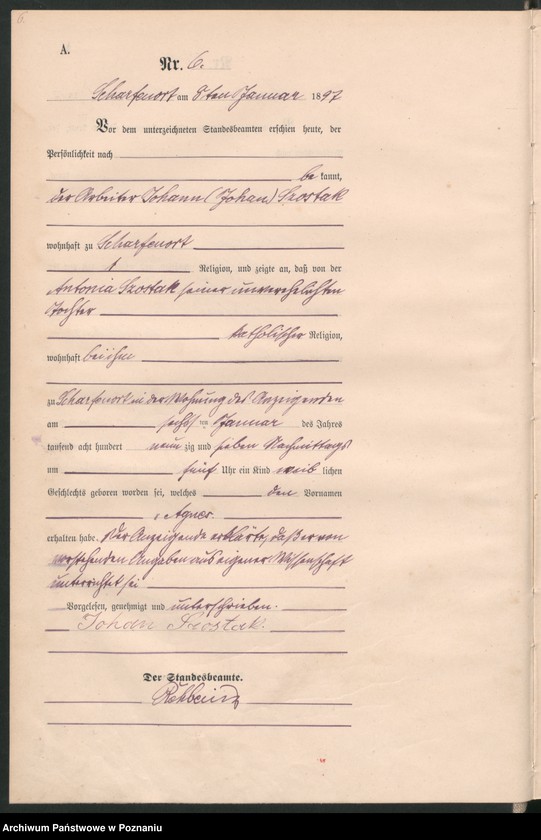 6.
A.
Nr. 6.
Scharfenort am 8ten Januar 1897
Vor dem unterzeichneten Standesbeamten erschien heute, der
Persönlichkeit nach
be kannt,
der Arbeiter Johann (Johan) Szostak
wohnhaft zu Scharfenort
Religion, und zeigte an, daß von der
Antonia Szostak seiner unverehelichten
Tochter
katholischer Religion,
wohnhaft bei ihm
zu Scharfenort in der Wohnung des Anzeigenden
am sechsten Januar des Jahres
tausend acht hundert neunzig und sieben Nachmittags
um fünf Uhr ein Kind weiblichen
Geschlechts geboren worden sei, welches den Vornamen
Agnes.
erhalten habe. Der Anzeigende erklärte, daß er von
vorstehenden Angaben aus eigener Wissenschaft
unterrichtet sei
Vorgelesen, genehmigt und unterschrieben.
Johan Szostak.
Der Standesbeamte.
Archiwum Państwowe w Poznaniu